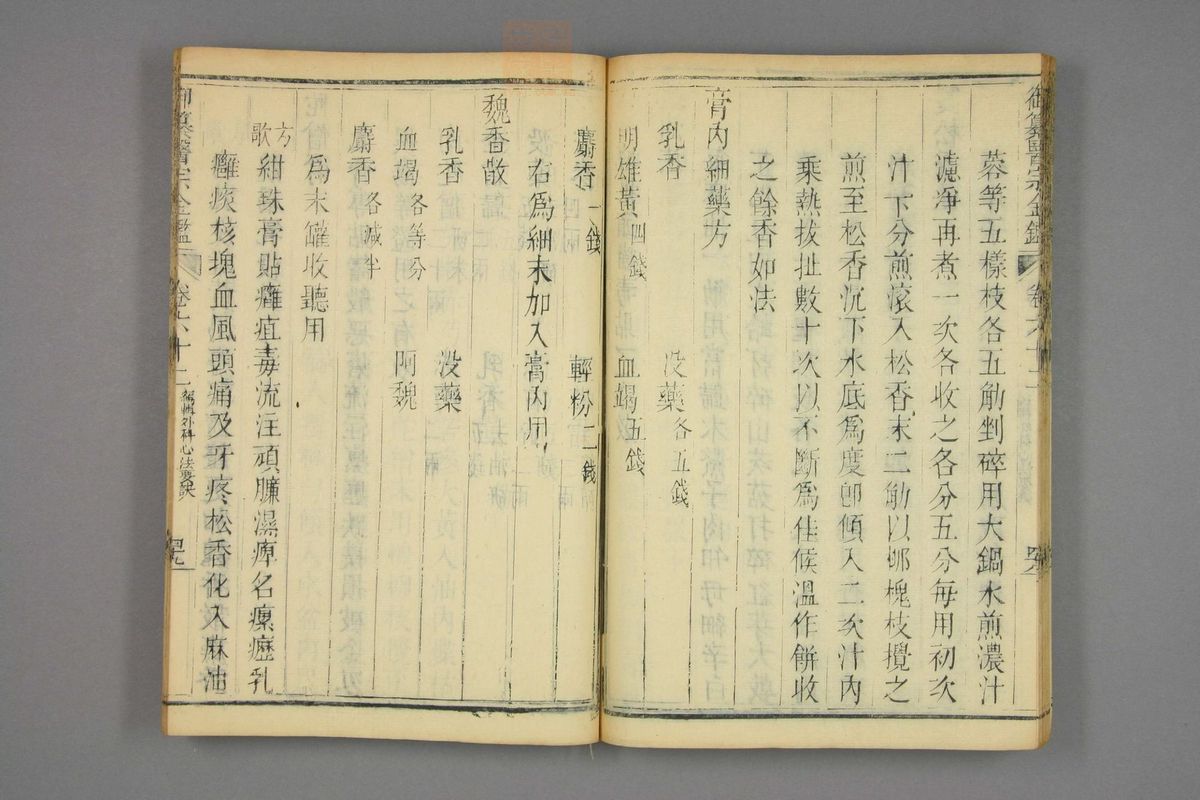 御纂醫宗金鑑 卷六十二
蓉等五樣枝各五觔剉碎用大鍋水煎濃汁
濾淨再煮一次各收之各分五分每用初次
汁下分煎滾入松香末二觔以槐枝攪之
煎至松香沉下水底為度卽傾入二次汁內
乘熱拔扯數十次以不斷為佳候溫作餅收
之餘香如法
膏內細藥方
乳香 沒藥各五錢
明雄黃四錢 血竭五錢
麝香一錢 輕粉二錢
右為細末加入膏內用
魏香散
乳香 沒藥
血竭各等分 阿魏
麝香各減半
為末罐收聽用
方歌 紺珠膏貼癰疽毒流注頑臁濕痺名瘰癧乳
癰痰核塊血風頭痛及牙疼松香化入麻油
御纂醫宗金鑑 卷六十二 編輯外科心法要訣